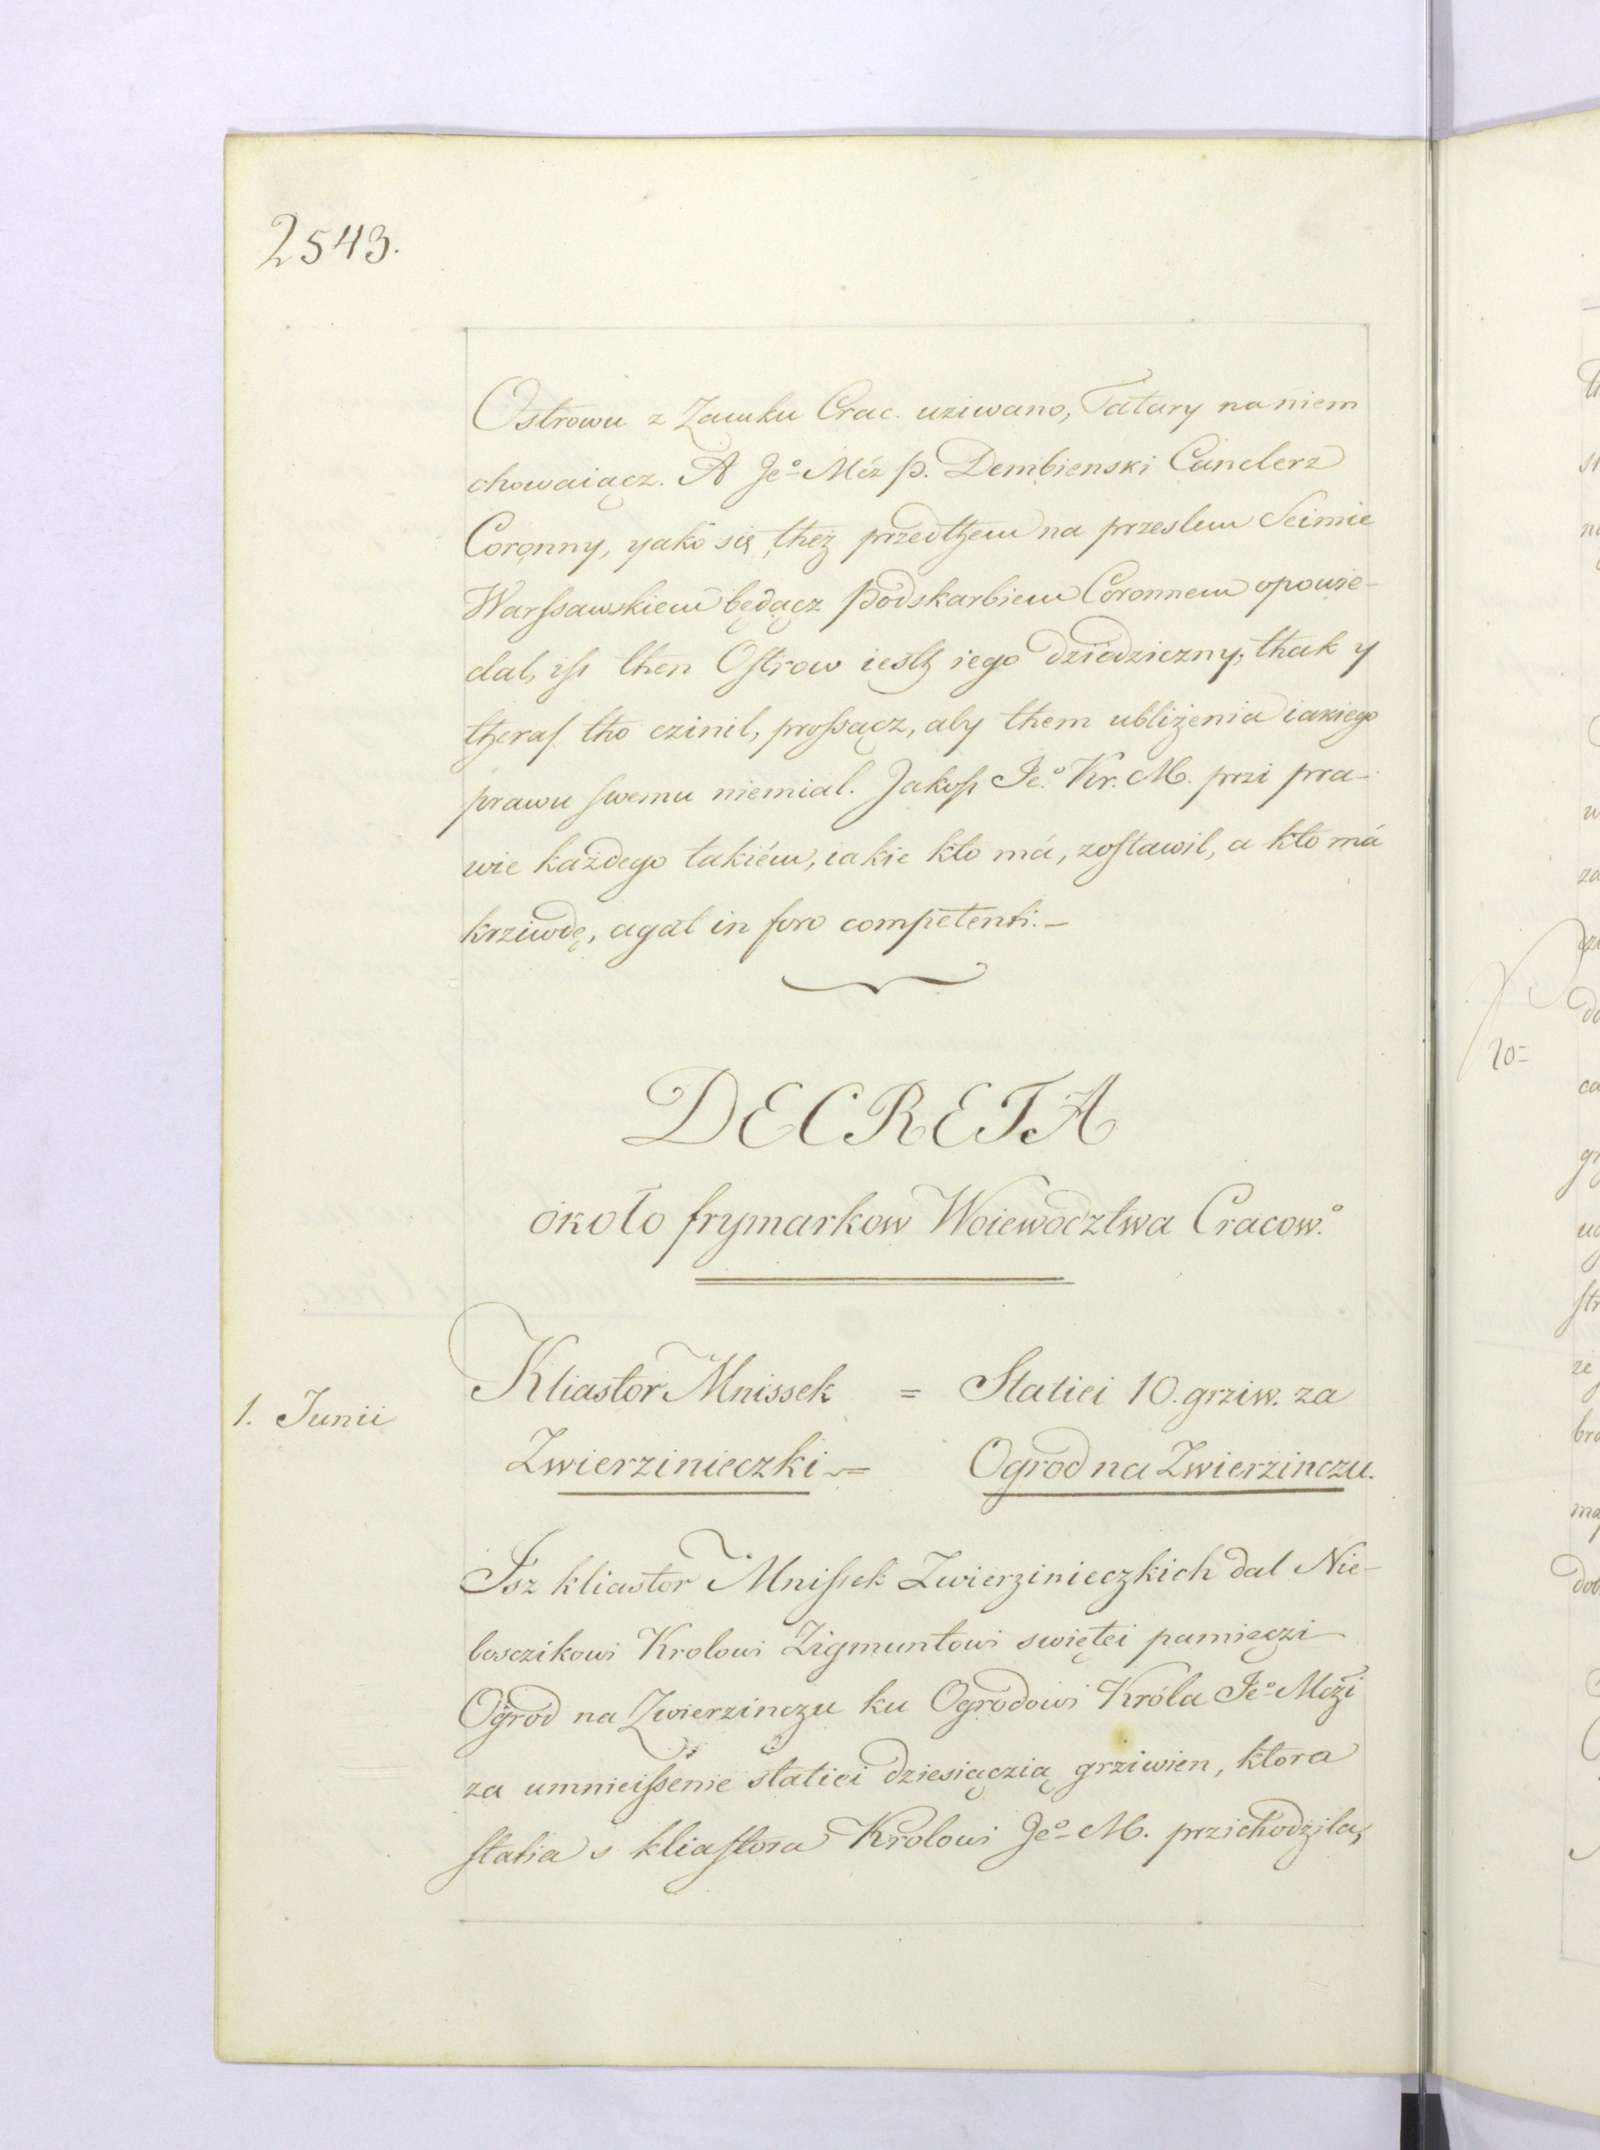 2543.
Ostrowu z Zamku Crac. uziwano, Tatary na niem
chowaiącz. A Jeº Mćz p. Dembienski Canclerz
Coronny, yako się thez przedthem na przeslem Seimie
Warſsawskiem będącz Podskarbiem Coronnem opowie-
dal, iſz then Oſtrow iesth iego dziedziczny, thak y
theraſ tho czinil, proſsącz, aby them ubliżenia iakiego
prawu ſwemu niemial. Jakoſz Jeº Kr. M. przi pra-
wie każdego takiém, iakie kto má, zoſtawil, a kto má
krziwdę, agat in foro competenti.—
DECRETA
około frymarkow Woiewodztwa Cracow.º
1. Junii
Kliastor Mnissek = Statiei 10. grziw. za
Zwierzinieczki = Ogrod na Zwierzinczu.
Isz kliastor Mniſsek Zwierzinieczkich dal Nie-
bosczikowi Krolowi Zigmuntowi swiętei pamięczi
Ogrod na Zwierzinczu ku Ogrodowi Króla Jeº Mczi
za umnieiſsenie statiei dziesiączią grziwien, ktora
ſtatia s kliaſtora Krolowi Jeº M. przichodzila,
20=